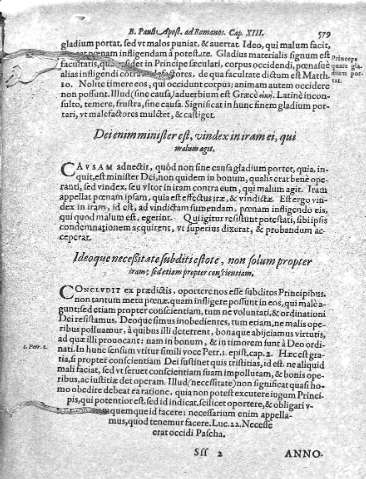 B. Pauli Apost. ad Romanos. Cap. XIII. 579
gladium portat, sed vt malos puniat, & auertat. Ideo, qui malum facit,
pœnam infligendam à potestate. Gladius materialis signum est
facultatis, quæ residet in Principe sæculari, corpus occidendi, pœnasue
alias infligendi côtra malefactores. de qua facultate dictum est Matth.
10. Nolite timere eos, qui occidunt corpus, animam autem occidere
non possunt. Illud (sine causa) aduerbium est Græcè Latinè incon-
sultò, temere, frustra, sine causa. Significat in hunc finem gladium por-
tari, vt malefactores mulctet, & castiget.
Principe
quare gla-
dium por-
tat.
Dei enim minister est, vindex in iram ei, qui
malum agit.
CAVSAM adnectit, quòd non sine causa gladium portet, quia, in-
quit, est minister Dei, non quidem in bonum, qualis erat benè ope-
ranti, sed vindex, seu vltor in iram contra eum, qui malum agit. Iram
appellat pœnam ipsam, quia est effectus iræ, & vindictæ. Est ergo vin-
dex in iram, id est, ad vindictam sumendam, pœnam infligendo eis,
qui quod malum est, egerint. Qui igitur resistunt potestati, sibi ipsis
condemnationem acquirent, vt superius dixerat, & probandum ac-
ceperat.
Ideoque necessitate subditi estote, non solum propter
iram, sed etiam propter conscientiam.
CONCLVDIT ex prædictis, oportere nos esse subditos Principibus,
non tantum metu pœnæ quam infligere possunt in eos, qui male a-
gunt, sed etiam propter conscientiam, tum ne voluntati, & ordinationi
Dei resistamus. Deoque simus inobedientes, tum etiam, ne malis ope-
ribus polluamur, à quibus illi deterrent, bonaque abijciamus virtutis,
ad quæ illi prouocant: nam in bonum, & in timorem sunt à Deo ordi-
nati. In hunc sensum vtitur simili voce Petr. 1. epist. cap. 2. Hæc est gra-
1. Petr. 2.
tia, si propter conscientiam Dei sustinet quis tristitias, id est ne aliquid
mali faciat, sed vt seruet conscientiam suam impollutam, & bonis ope-
ribus, ac iustitiæ det operam. Illud (necessitate) non significat quòd ho-
mo obedire debeat ea ratione, quia non potest excutere iugum Princi-
pis, qui potentior est. sed id indicat, scilicet oportere, & obligari v-
numquemque id facere: necessarium enim appella-
mus, quod tenemur facere. Luc. 22. Necesse
erat occidi Pascha.
Sſſ 2 ANNO-